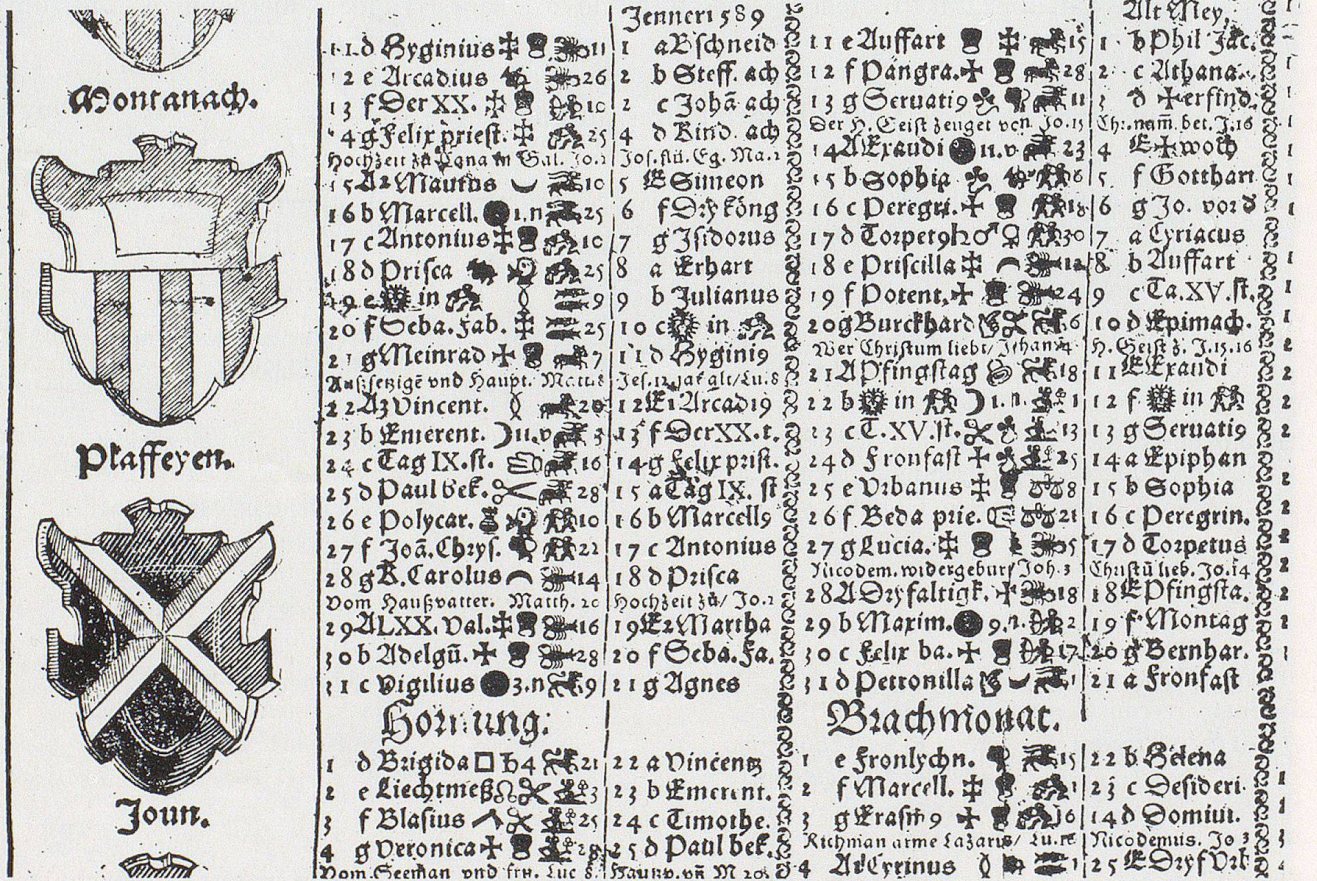 Montanach.
Pfaffeyen.
Joun.
11 d Hyginius 11
12 e Arcadius 26
13 f Der XX. 10
14 g Felix priest. 25
Hochzeit zů Cana in Gal. Jo. 2
15 A2 Maurus 10
16 b Marcell. 1.n 25
17 c Antonius 10
18 d Prisca 25
19 e in 9
20 f Seba. Fab. 25
21 g Meinrad 7
Außsetzige vnd Haupt. Matt. 8
22 A3 Vincent. 20
23 b Emerent. 11.v 3
24 c Tag IX. st. 16
25 d Paul bek. 28
26 e Polycar. 10
27 f Joã. Chrys. 22
28 g K. Carolus 14
Vom Haußvatter. Matth. 20
29 A LXX. Val. 16
30 b Adelgū. 28
31 c Vigilius 3.n 9
Hornung.
1 d Brigida □ ♄ 4 21
2 e Liechtmeß 3
3 f Blasius 25
4 g Veronica 28
Vom Seeman vnd Luc 8.
Jenner 1589
1 a Bschneid
2 b Steff. ach
2 c Johã ach
4 d Kind. ach
Jos. flü. Eg. Ma. 2
5 E Simeon
6 f Dry köng
7 g Isidorus
8 a Erhart
9 b Julianus
10 c in
11 d Hygini9
Jes. 12. jar alt/ Lu. 8
12 E1 Arcadi9
13 f Der XX. t.
14 g Felix prist.
15 a Tag IX. st
16 b Marcell9
17 c Antonius
18 d Prisca
Hochzeit zů/ Jo. 2
19 E2 Martha
20 f Seba. Fa.
21 g Agnes
22 a Vincentz
23 b Emerent.
24 c Timothe.
25 d Paul bek.
11 e Auffart 15
12 f Pangra. 28
13 g Seruati9 11
Der H. Geist zeuget von. Jo. 15
14 A Exaudi 11.v 23
15 b Sophia 6
16 c Peregri. 18
17 d Torpet9 ♄ ♂ ♀ 30
18 e Priscilla 12
19 f Potent. 24
20 g Burckhard 6
Wer Christum liebt/ Johan 14
21 A Pfingstag 18
22 b in 1.n. 1
23 c T. XV. st. 13
24 d Fronfast 25
25 e Vrbanus 8
26 f Beda prie. 21
27 g Lucia. 5
Nicodem. widergeburt Joh. 3
28 A Dryfaltigk. 18
29 b Maxim. 9.n. 2
30 c Felix ba. 17
31 d Petronilla 1
Brachmonat.
1 e Fronlychn. 15
2 f Marcell. 1
3 g Erasm9 16
Richman arme Lazarus/ Lu. 16
4 A1 Cyrinus 1
Alt Mey,
1 b Phil Jac.
2 c Athana.
3 d ✝erfind.
Chr. nam̃. bet. J. 16
4 E ✝woch
5 f Gotthart
6 g Jo. vor d
7 a Cyriacus
8 b Auffart
9 c Ta. XV. st.
10 d Epimach.
H. Geist z. J. 15. 16
11 E Exaudi
12 f in
13 g Seruati9
14 a Epiphan
15 b Sophia
16 c Peregrin.
17 d Torpetus
Christū lieb. Jo. 14
18 E Pfingsta.
19 f Montag
20 g Bernhar.
21 a Fronfast
22 b Helena
23 c Desideri
14 d Domiti.
Nicodemus. Jo 3
25 E Dryf Vrb